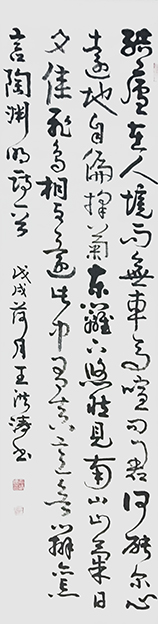 結廬在人境而無車馬喧問君何能尔心
遠地自偏採菊東籬下悠然見南山山氣日
夕佳飛鳥相與還此中有真意欲辨已忘
言陶渊明詩一首 戊戌荷月王洪涛书